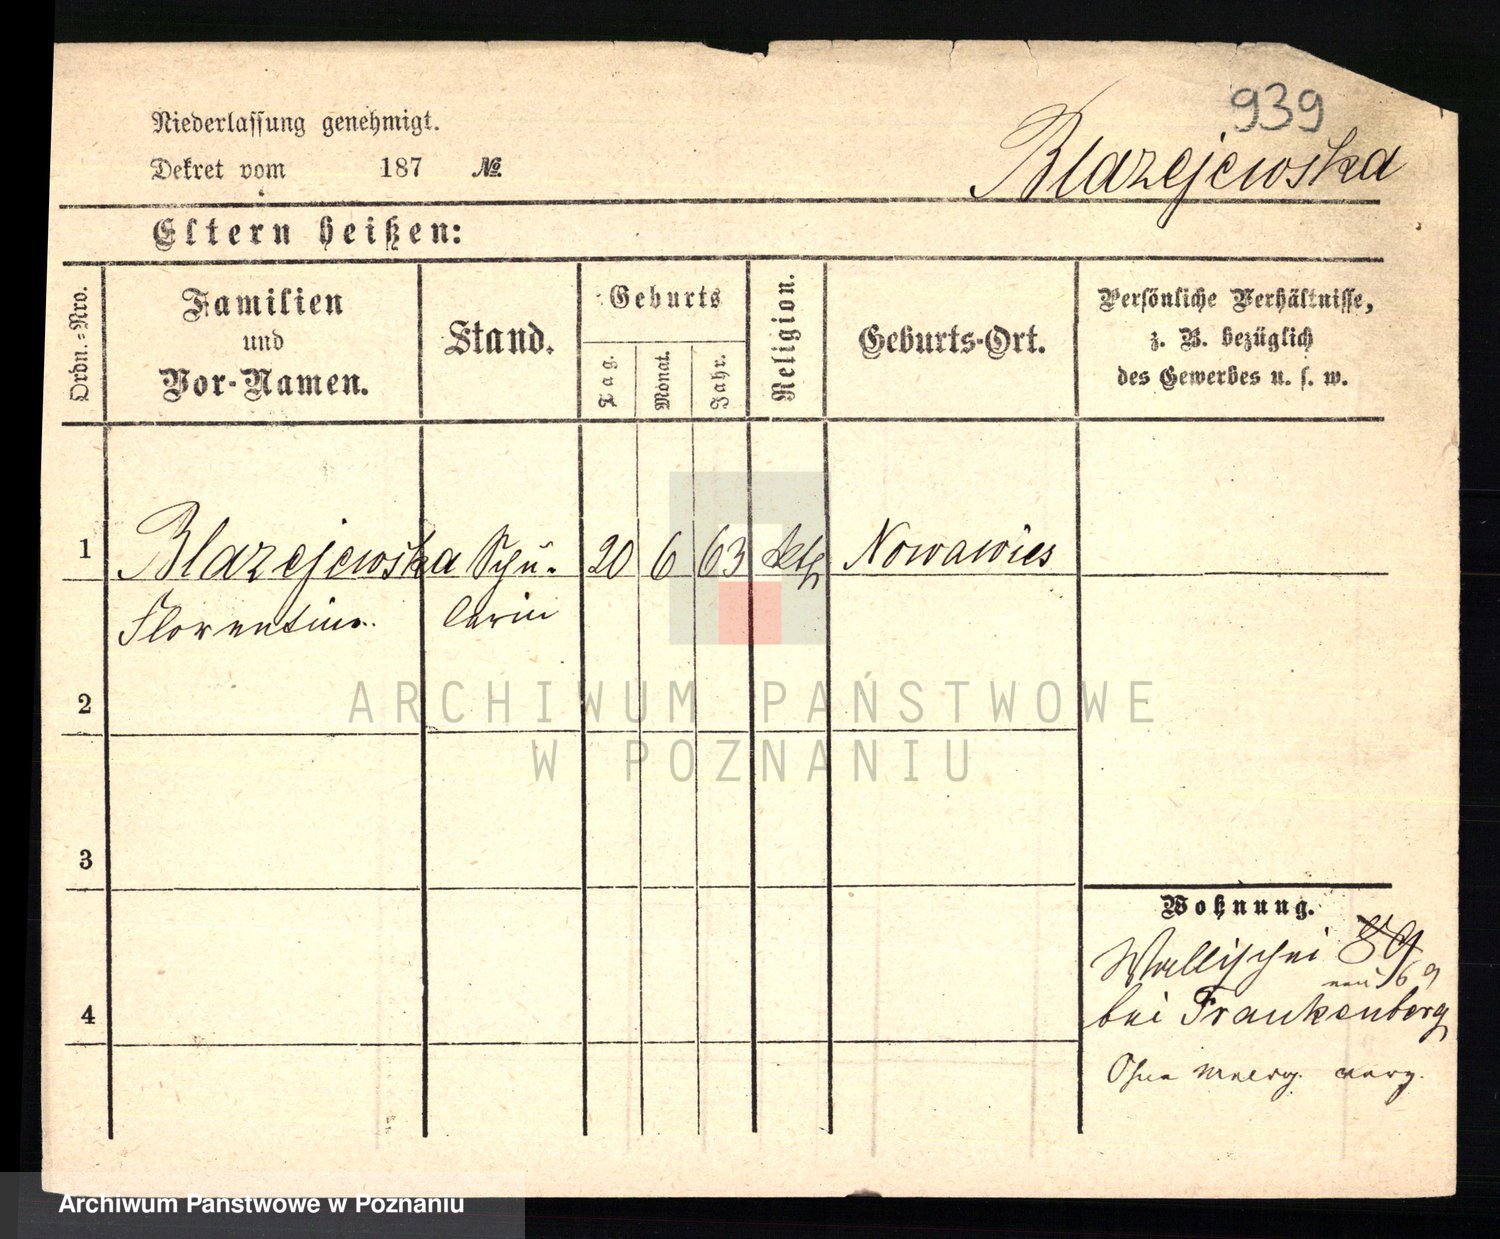 939
Niederlassung genehmigt.
Blazejewska
Dekret vom 187 №
Eltern heißen:
Ordn.=Nro.
Familien
und
Vor-Namen.
Stand.
Geburts
Tag.
Monat.
Jahr.
Religion.
Geburts-Ort.
Persönliche Verhältnisse,
z. B. bezüglich
des Gewerbes u. s. w.
1 Blazejewska Schü- 20 6 63 kth Nowawies
Florentine lerin
2
ARCHIWUM PAŃSTWOWE
W POZNANIU
3
Wohnung.
Wallischei 89
neu 69
4
bei Frankenberg
Ohne
Archiwum Państwowe w Poznaniu